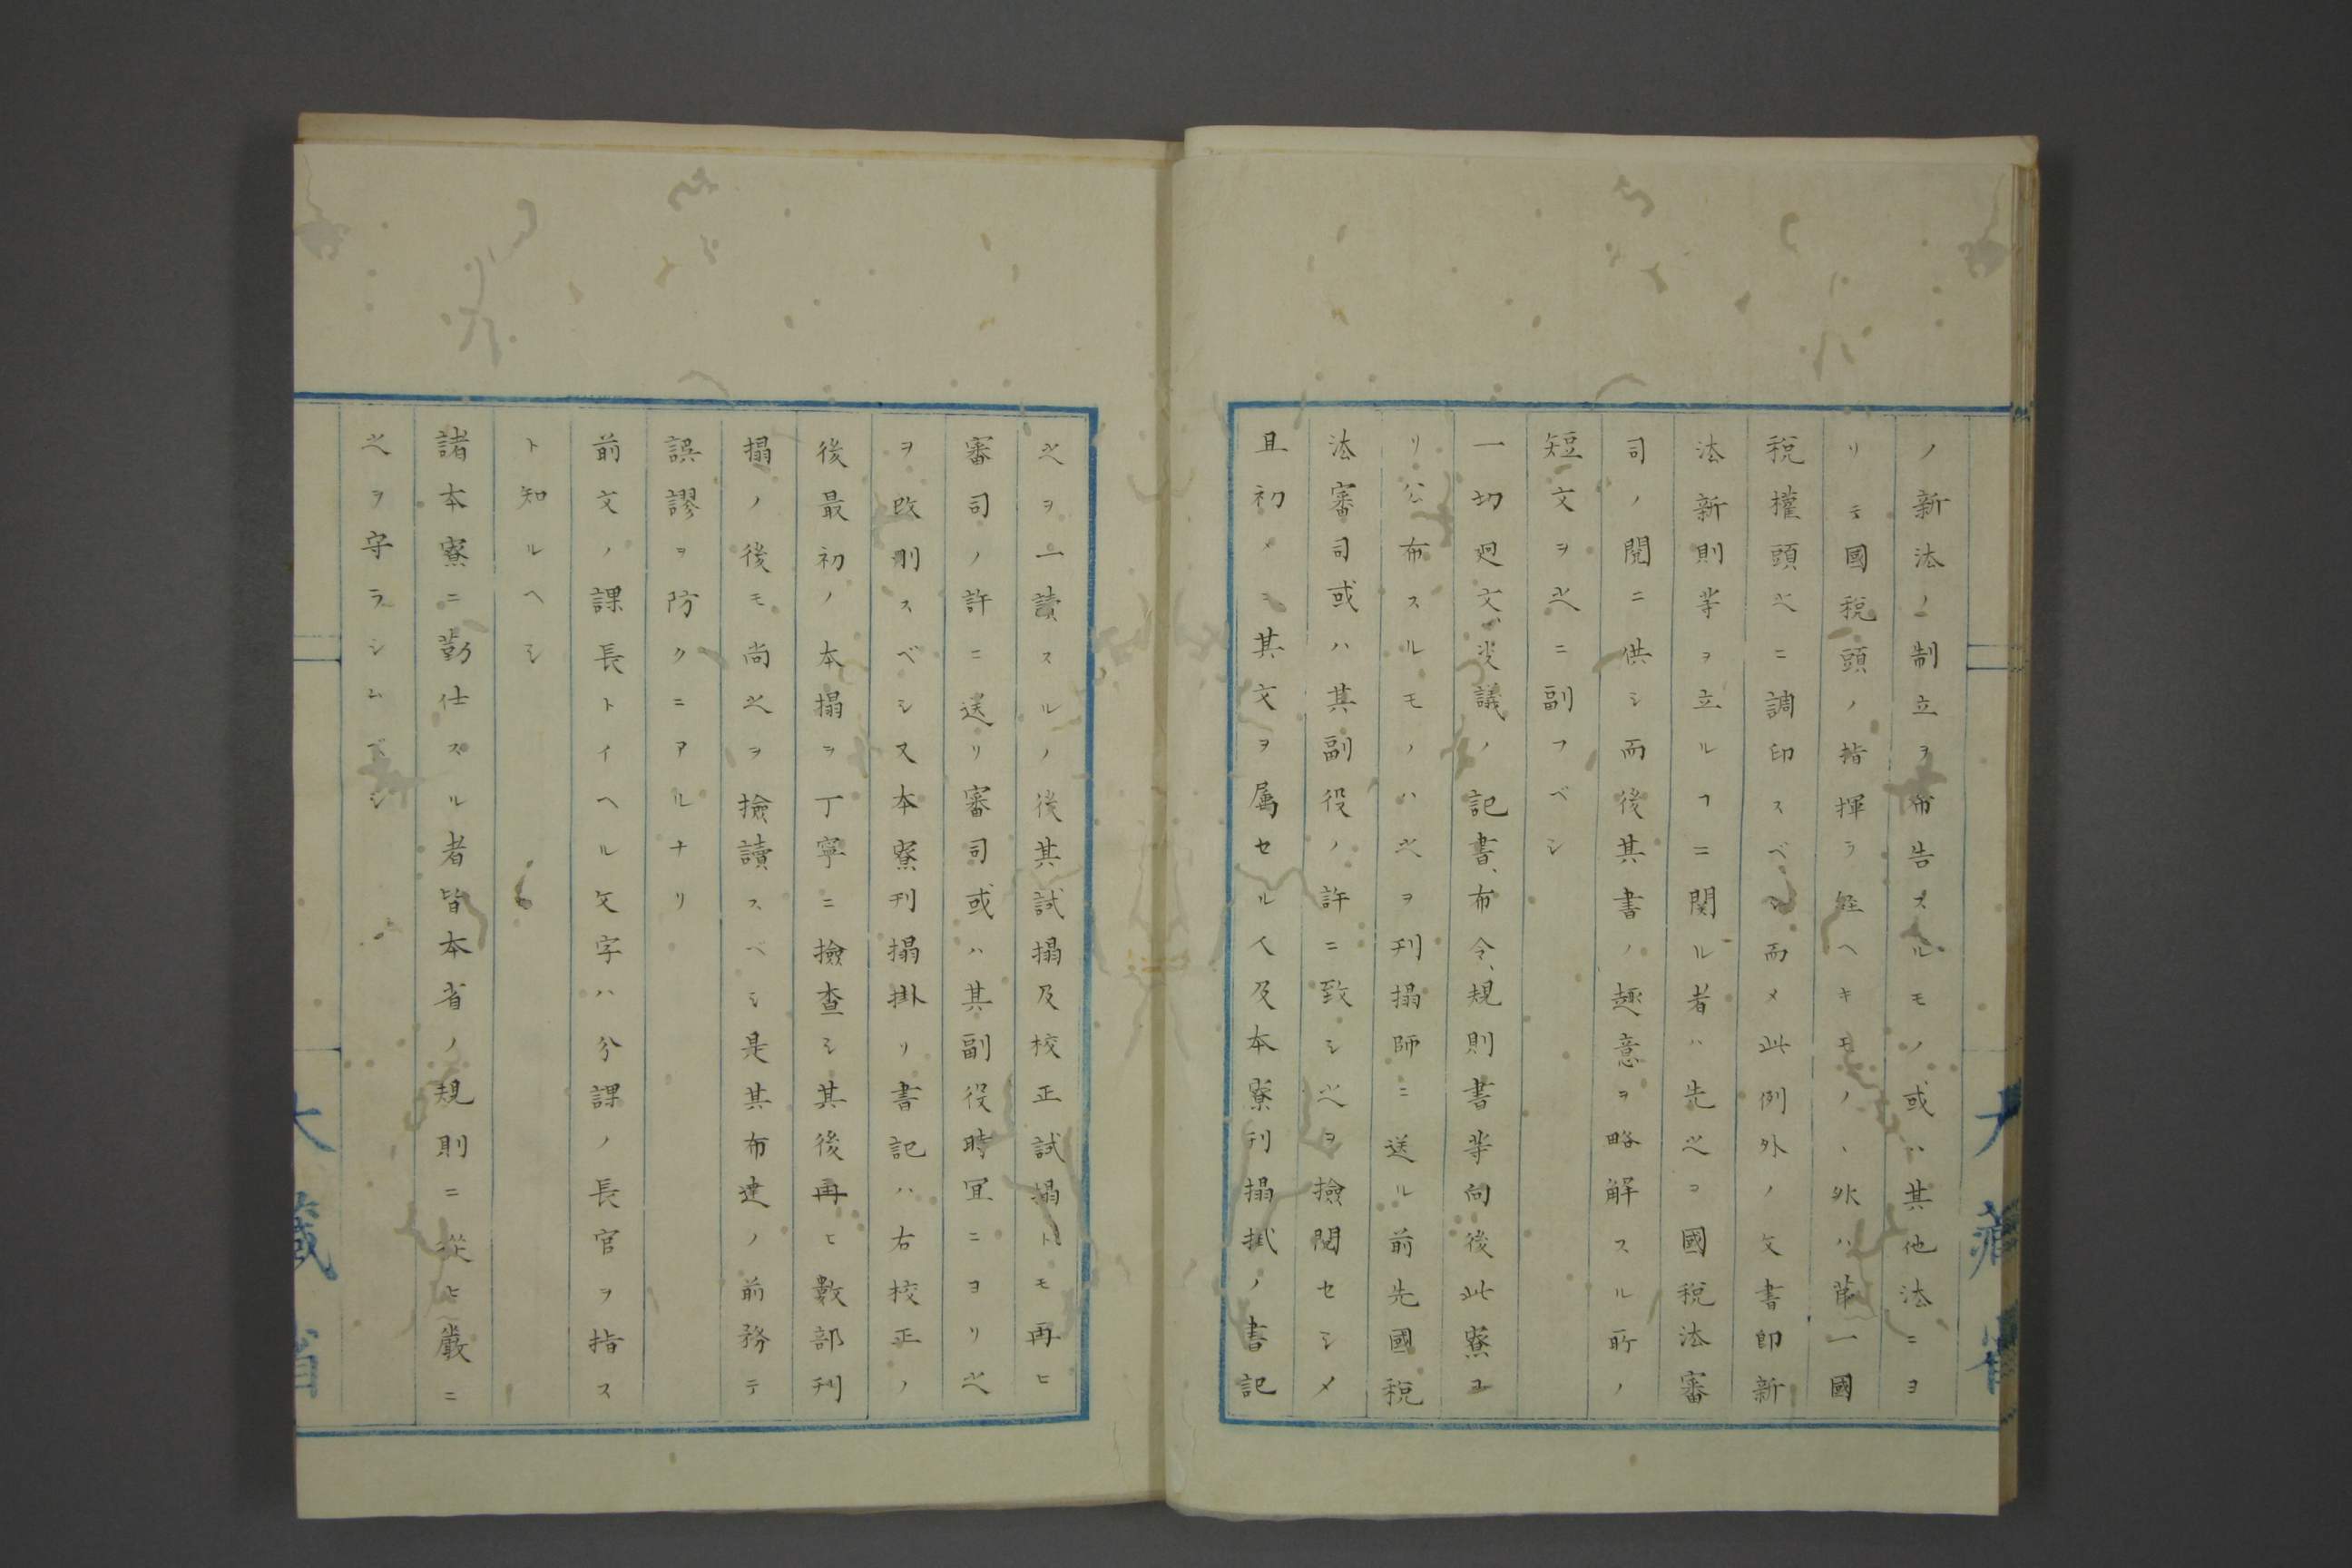 ノ新法ノ制立ヲ布告スルモノ或ハ其他法ニヨ
リテ國税頭ノ指揮ヲ経ヘキモノヽ外ハ第一國
税權頭之ニ調印スベシ而メ此例外ノ文書即新
法新則等ヲ立ルヿニ関ル者ハ先之ヲ國税法審
司ノ閲ニ供シ而後其書ノ趣意ヲ略解スル所ノ
短文ヲ之ニ副フベシ
一切廻文、決議ノ記書、布令、規則書等向後此寮ヨ
リ公布スルモノハ之ヲ刊搨師ニ送ル前先國税
法審司或ハ其副役ノ許ニ致シ之ヲ撿閲セシメ
且初メニ其文ヲ属セル人及本寮刊搨掛ノ書記
之ヲ一讀スルノ後其試搨及校正試搨トモ再ヒ
審司ノ許ニ送リ審司或ハ其副役時冝ニヨリ之
ヲ改刪スベシ又本寮刊搨掛リ書記ハ右校正ノ
後最初ノ本搨ヲ丁寧ニ撿査シ其後再ヒ數部刊
搨ノ後モ尚之ヲ撿讀スベシ是其布達ノ前務テ
誤謬ヲ防クニアルナリ
前文ノ課長トイヘル文字ハ分課ノ長官ヲ指ス
ト知ルヘシ
諸本寮ニ勤仕スル者皆本省ノ規則ニ從ヒ嚴ニ
之ヲ守ラシムベシ
大藏省
大藏省